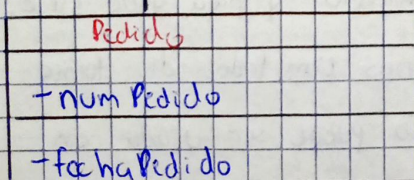 Pedido
-num Pedido
-fechaPedido